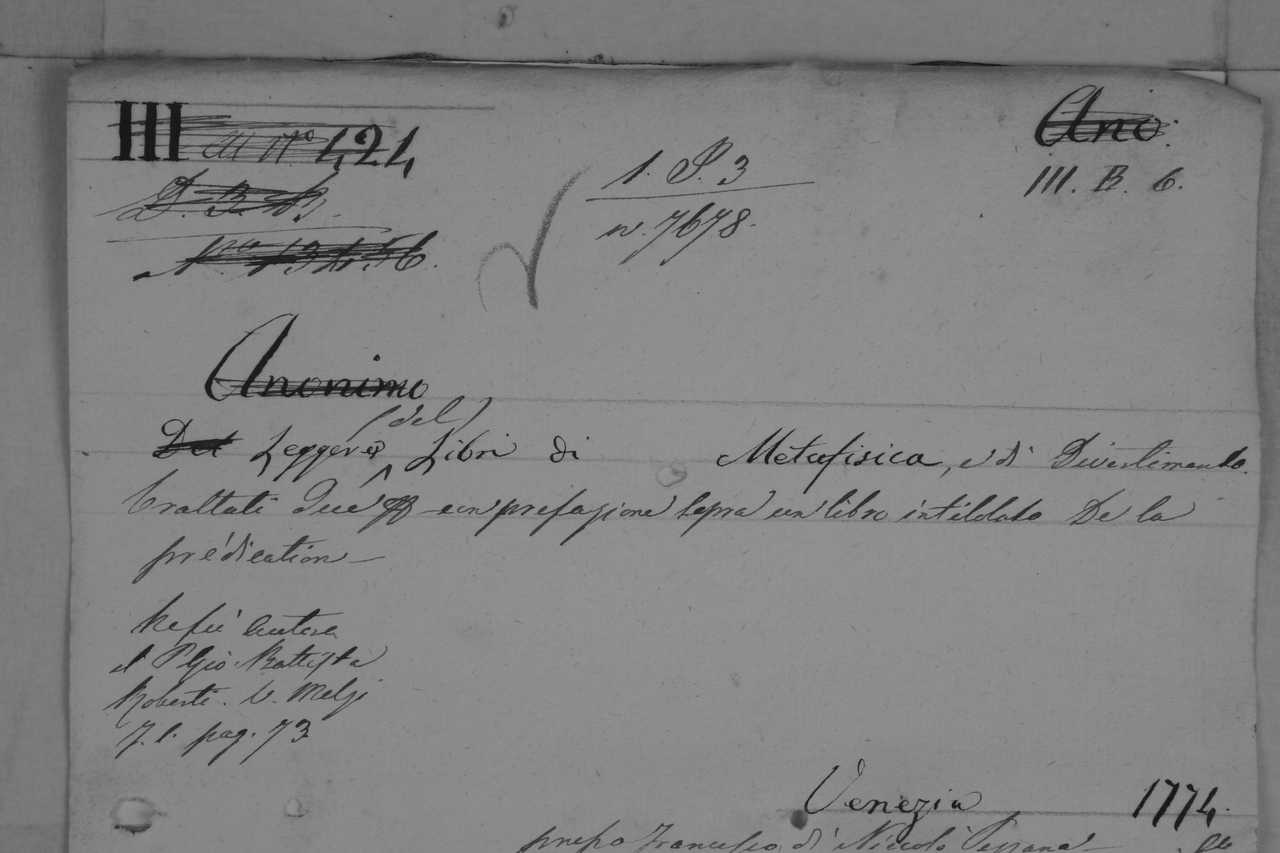 III N.° 424
Ano:
1. P. 3
III. B. 6.
D. B.
n. 7678.
N.ro 13456.
Anonimo
(del)
Del Leggere Libri di Metafisica, e di Divertimento.
Trattati due con prefazione sopra un libro intitolato De la
prédication
Ne fu autore
il P. Gio. Battista
Roberti. V. Melzi
T. 1. pag. 73
Venezia 1774.
presso Francesco di Niccolò Pezzana